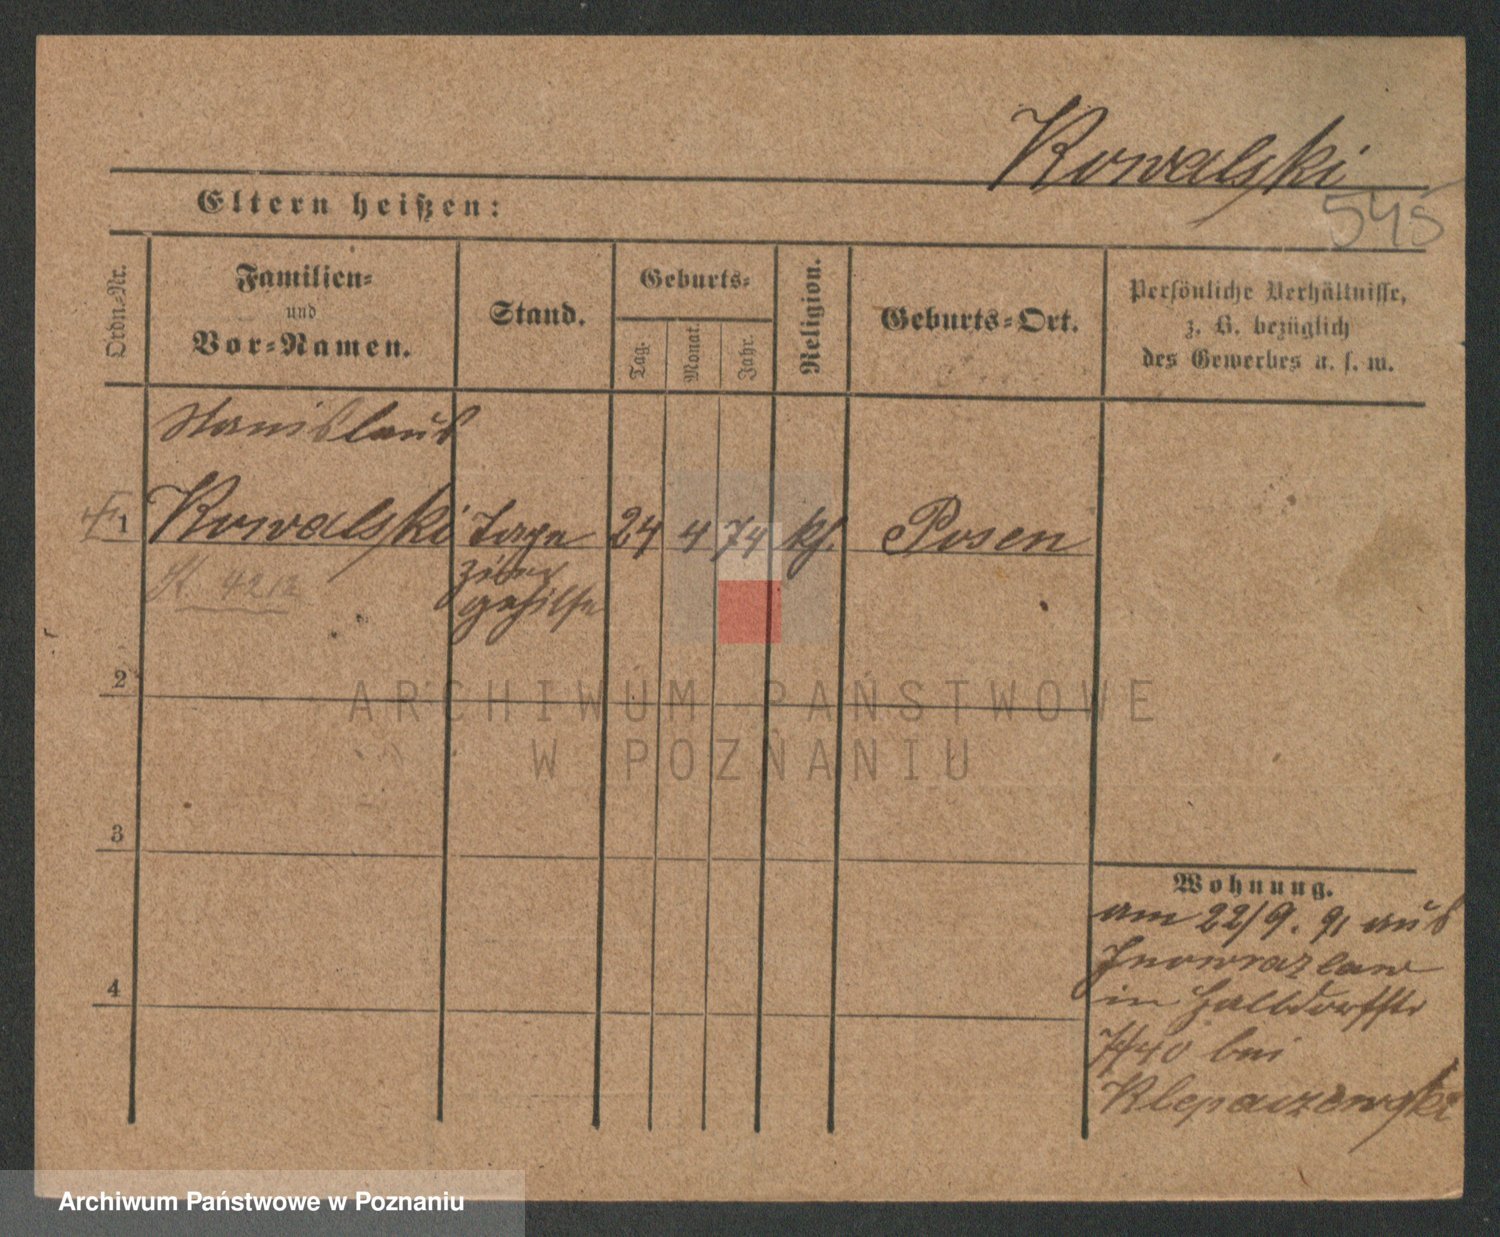 Kowalski
545
Eltern heißen:
Ordn.-Nr.
Familien-
und
Vor-Namen.
Stand.
Geburts-
Tag.
Monat.
Jahr.
Religion.
Geburts-Ort.
Persönliche Verhältnisse,
z. B. bezüglich
des Gewerbes u. s. w.
Stanislaus
1 Kowalski Tape 24 4 74 kf. Posen
zier
gehilfe
2
3
4
Wohnung.
am 22/9. 91 aus
Inowrazlaw
in Halbdorfstr
bei
Klepaczewski
ARCHIWUM PAŃSTWOWE
W POZNANIU
Archiwum Państwowe w Poznaniu